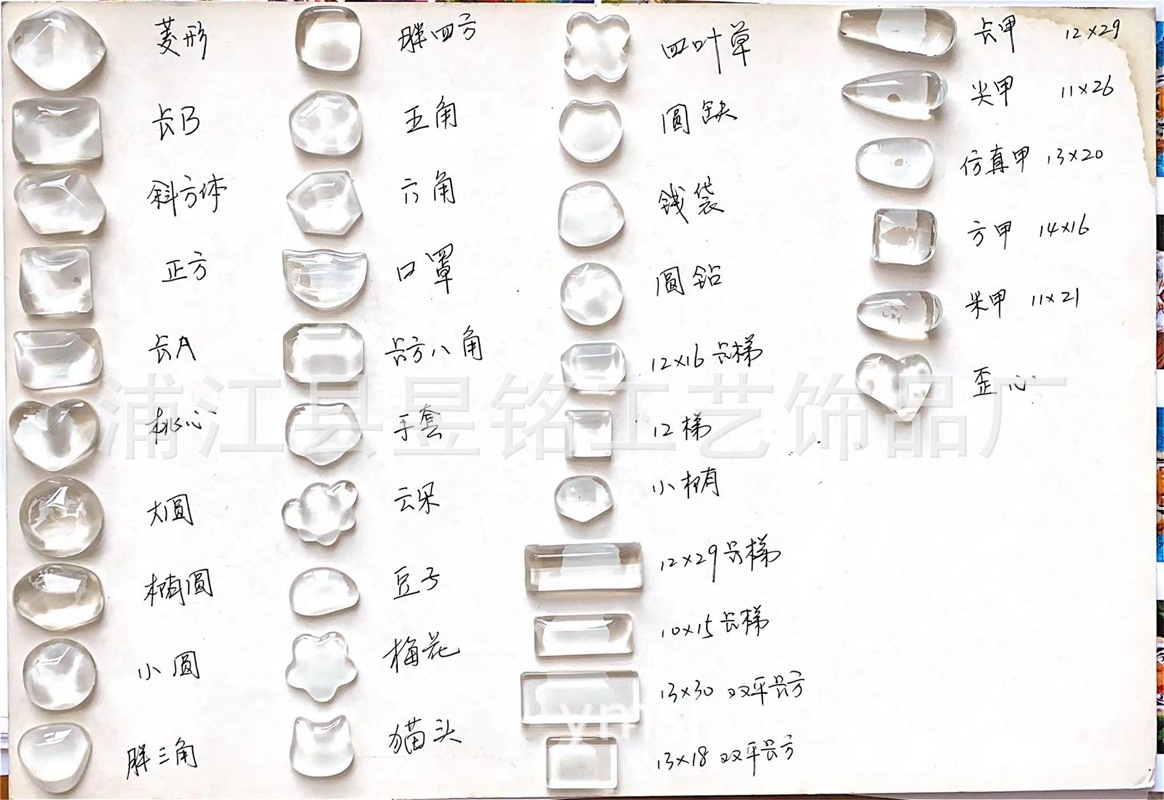 菱形
长B
斜方体
正方
长A
桃心
大圆
椭圆
小圆
胖三角
胖四方
五角
六角
口罩
长方八角
手套
云朵
豆子
梅花
猫头
四叶草
圆缺
钱袋
圆钻
12×16 长梯
12梯
小椭
12×29 长梯
10×15 长梯
13×30 双平长方
13×18 双平长方
长甲 12×29
尖甲 11×26
仿真甲 13×20
方甲 14×16
米甲 11×21
歪心
浦江县昱铭工艺饰品厂